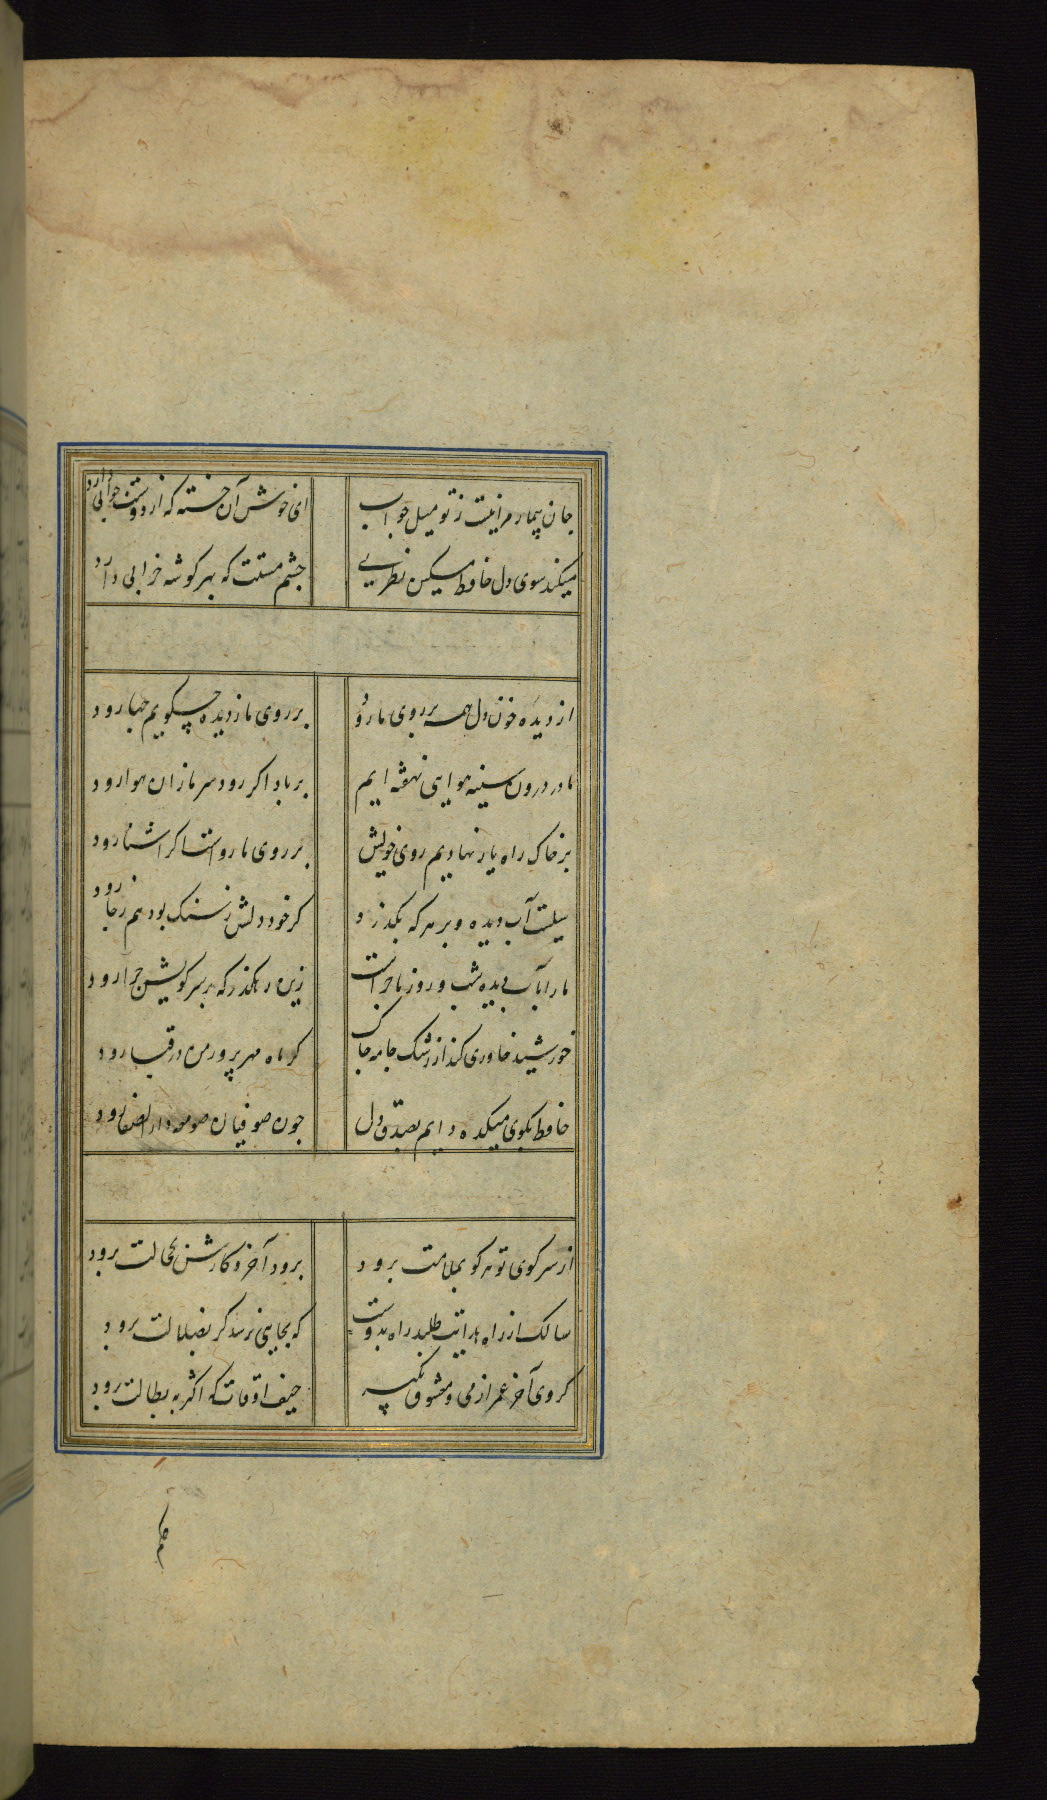 جان بیمار مرا نیست ز تو میل جواب ای خوش آن خسته که از دوست جوابی دارد
میکند سوی دل حافظ مسکین نظری چشم مستت که بهر کوشه خرابی دارد
از دیده خون دل همه بر روی ما رود بر روی ما ز دیده چکویم چها رود
ما در درون سینه هوایی نهفته ایم بر باد اکر رود سر ما زان هوا رود
بر خاک راه یار نهادیم روی خویش بر روی ما رواست اکر اشنا رود
سیلست آب دیده و بر هر که بکذرد کر خود دلش ز سنک بود هم ز جا رود
ما را بآب دیده شب و روز ماجراست زین رهکذر که بر سر کویش چرا رود
خورشید خاوری کند از رشک جامه چاک کر ماه مهرپرور من در قبا رود
حافظ بکوی میکده دایم بصدق دل چون صوفیان صومعه دار الصفا رود
از سر کوی تو هر کو بملامت برود برود آخر و کارش بخجالت برود
سالک از راه هدایت طلبد راه بدوست که بجایی نرسد کر بضلالت برود
کروی آخر عمر از می و معشوق بکیر حیف اوقات که اکثر به بطالت برود
حکم